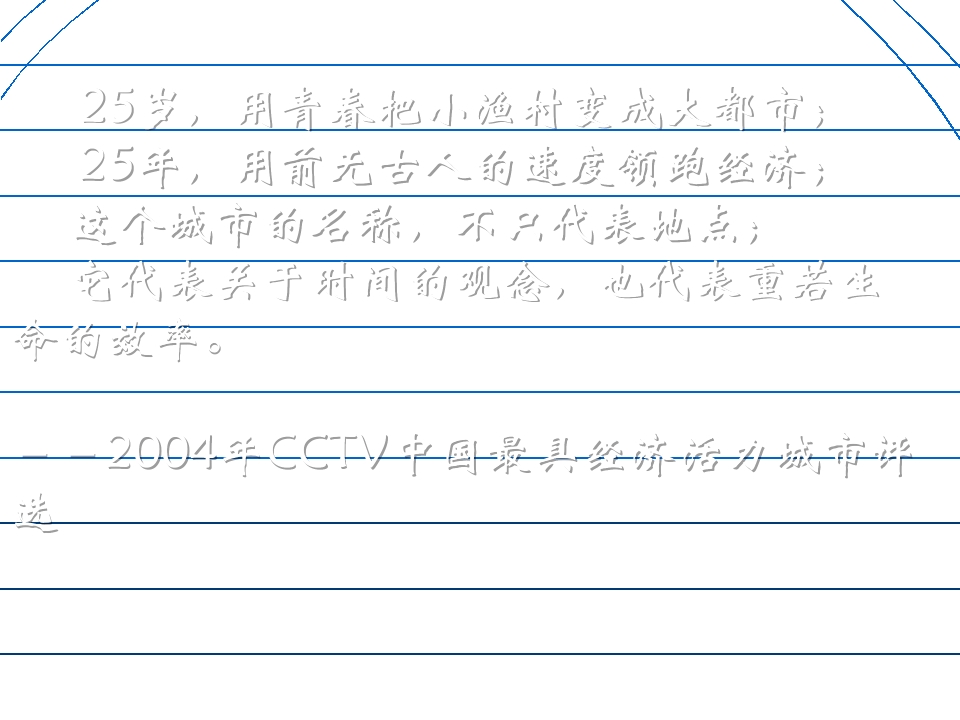 25岁，用青春把小渔村变成大都市；
25年，用前无古人的速度领跑经济；
这个城市的名称，不只代表地点；
它代表关于时间的观念，也代表重若生
命的效率。
－－2004年CCTV中国最具经济活力城市评
选